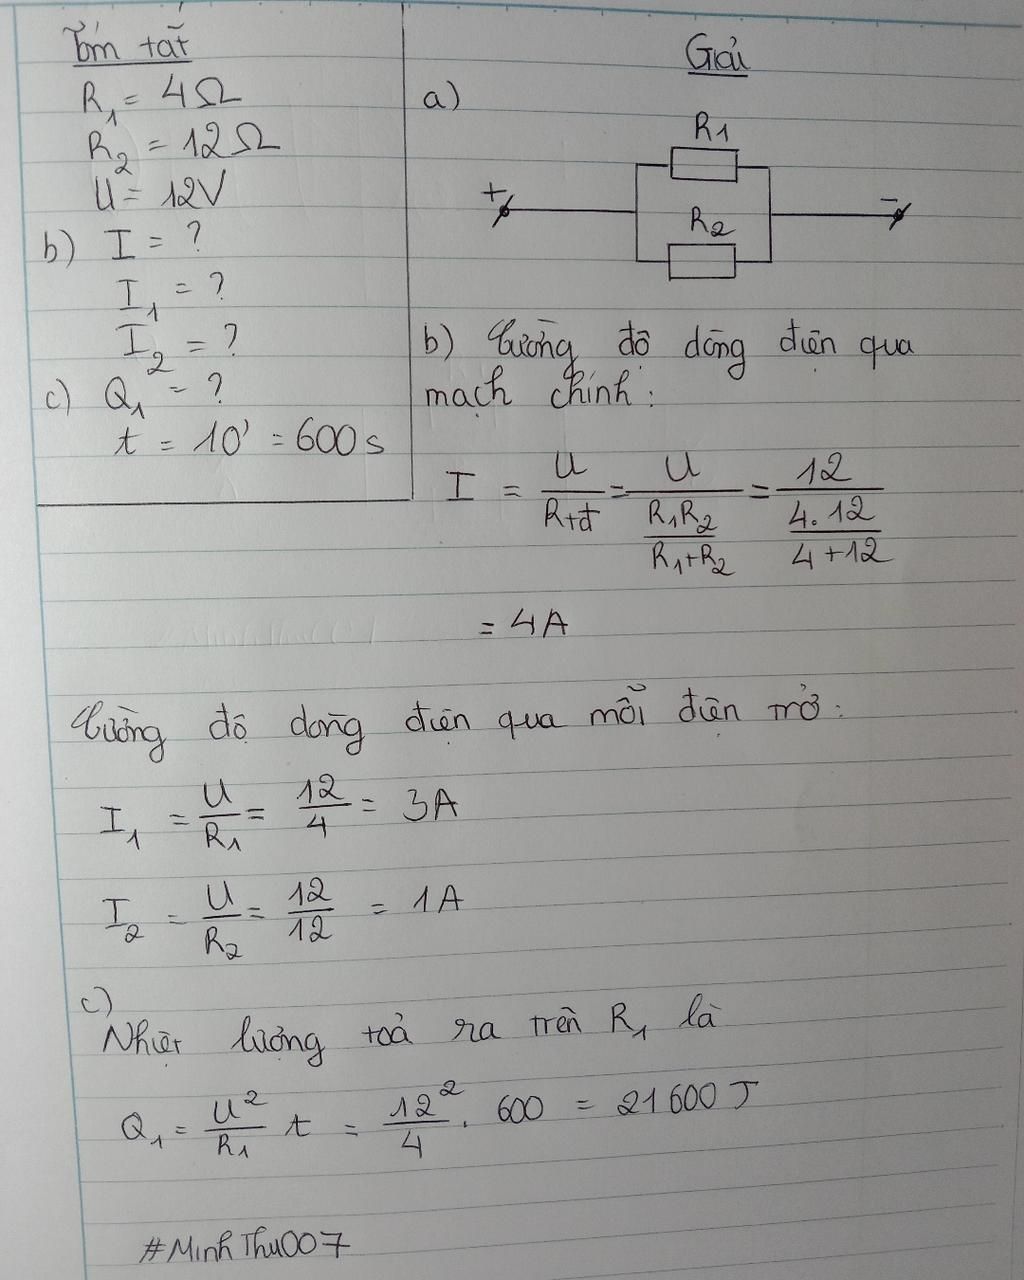 Tóm tắt
R₁ = 4Ω
R₂ = 12Ω
U = 12V
b) I = ?
I₁ = ?
I₂ = ?
c) Q₁ = ?
t = 10' = 600s
Giải
a)
R1
+ -
R2
b) Cường độ dòng điện qua
mạch chính:
I = U/Rtđ = U/(R₁R₂/(R₁+R₂)) = 12/(4.12/(4+12))
= 4A
Cường độ dòng điện qua mỗi điện trở:
I₁ = U/R₁ = 12/4 = 3A
I₂ = U/R₂ = 12/12 = 1A
c)
Nhiệt lượng toả ra trên R₁ là
Q₁ = U²/R₁ t = 12²/4 . 600 = 21600 J
#MinhThu007